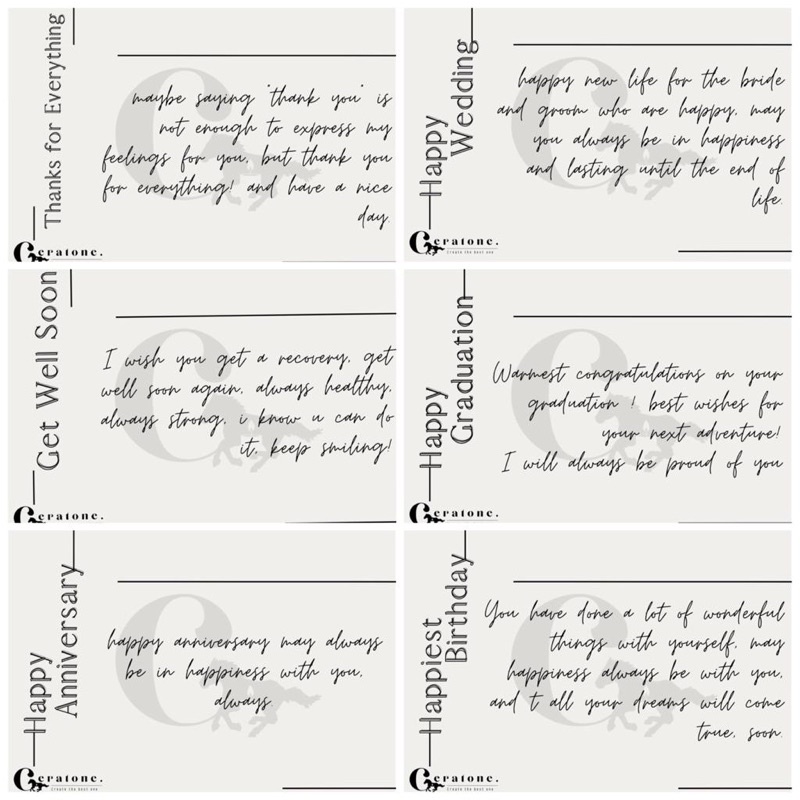 Thanks for Everything
maybe saying "thank you" is
not enough to express my
feelings for you, but thank you
for everything! and have a nice
day.
Ceratone.
Happy
Wedding
happy new life for the bride
and groom who are happy, may
you always be in happiness
and lasting until the end of
life.
Ceratone.
Create the best one
Get Well Soon
I wish you get a recovery, get
well soon again, always healthy,
always strong, i know u can do
it, keep smiling!
Ceratone.
Happy
Graduation
Warmest congratulations on your
graduation ! best wishes for
your next adventure!
I will always be proud of you
Ceratone.
Happy
Anniversary
happy anniversary may always
be in happiness with you,
always.
Ceratone.
Create the best one
Happiest
Birthday
You have done a lot of wonderful
things with yourself, may
happiness always be with you,
and t all your dreams will come
true, soon.
Ceratone.
Create the best one